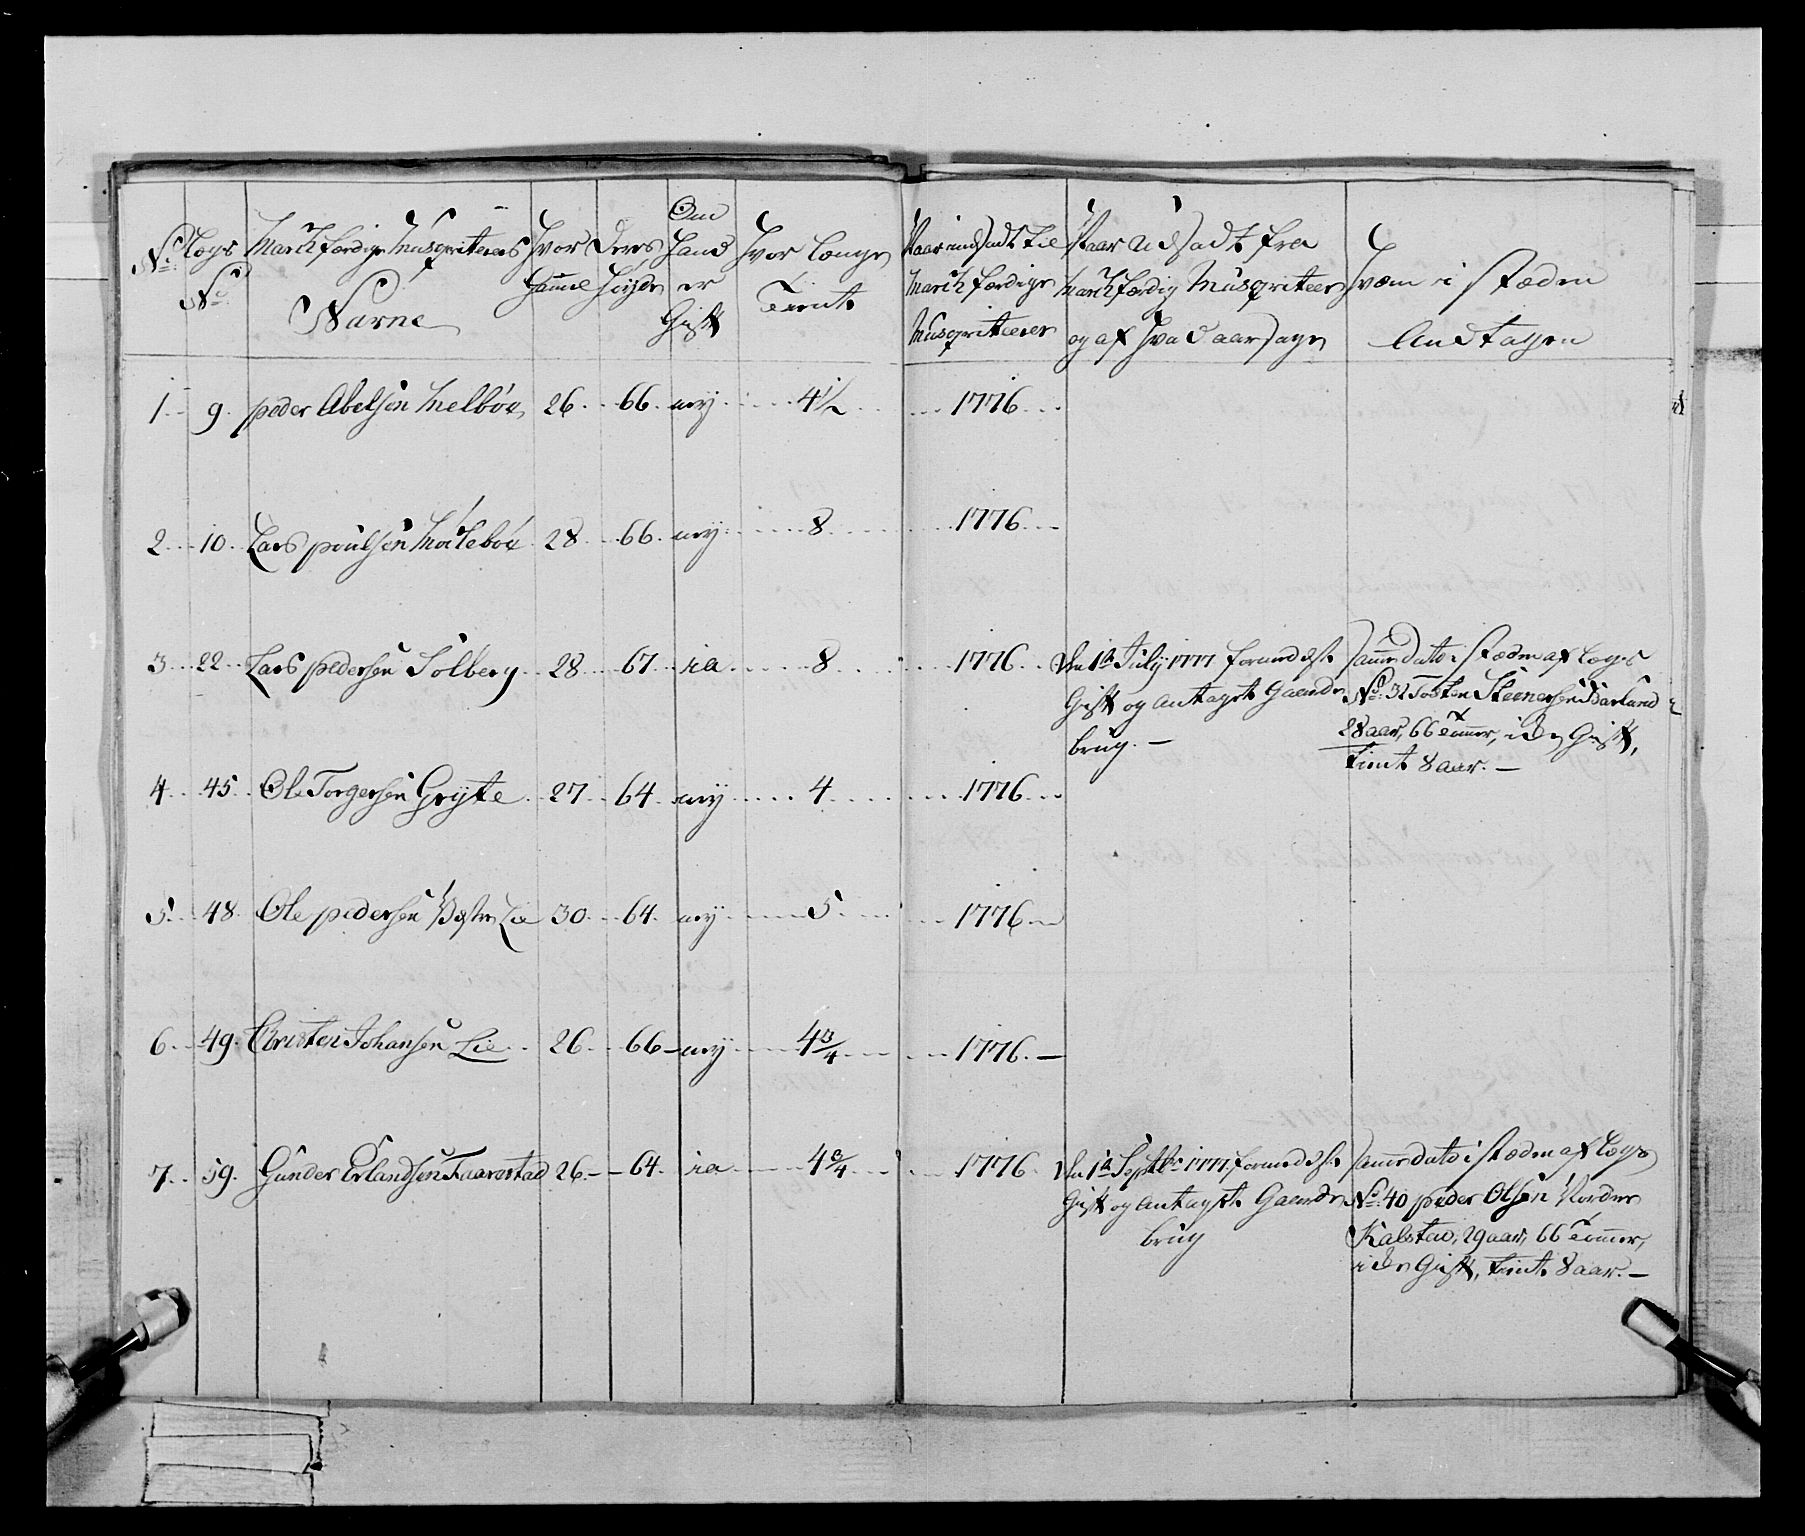 No: Lægs No: March færdige Musqviteeres Navne Hvor Gamel Deres Høyde Om Hand er Gift Hvor Længe Tient Naar indsadt til March færdige Musqviteerer Naar Udsadt fra March færdig Musqviteer og af Hvad aarsage Hvem i stæden Andtagen
1 9. peder Abelsen Melbøe 26 66 ney 4½ 1776
2 10 Lars poulsen 28 66 ney 8 1776
3 22 Lars pedersen Solberg 28 67 ia 8 1776 den 1te July 1777 formedelst samme dato i stæden af Lægs
Gift og antaget Gaarde No: 31 Tosten Steenersen Barland
brug. — 28 aar, 66 Tommer, iche Gift,
tient 8 aar. —
4 45 Ole Torgersen Gryte 27 64 ney 4 1776
5 48 Ole pedersen Vestre Lie 30 64 ney 5 1776
6 49 Christen Johansen Lie 26 66 ney 4¾ 1776 —
7 59. Gunder Erlandsen Faarestad 26 64 ia 4¾ 1776 den 1te Septbr 1777, formedelst samme dato i stæden af Lægs
Gift og antaget Gaarde No: 40 peder Olsen Nordre
brug Kalstad, 29 aar, 66 Tommer,
iche Gift, tient 8 aar. —